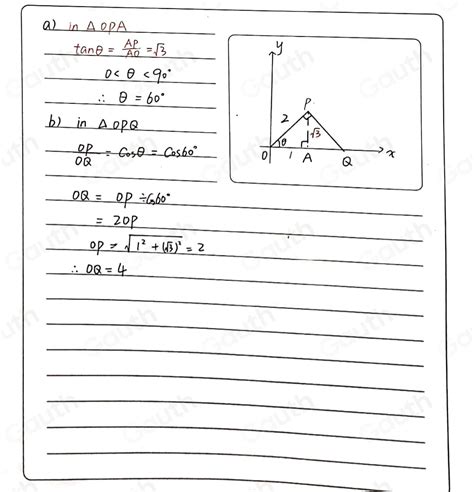 a) in △OPA
tanθ = AP/AO = √3
0 < θ < 90°
∴ θ = 60°
b) in △OPQ
OP/OQ = Cosθ = Cos60°
OQ = OP ÷ Cos60°
= 2OP
OP = √(1² + (√3)²) = 2
∴ OQ = 4
y
P
2
√3
θ
O
1
A
Q
x
Gauth